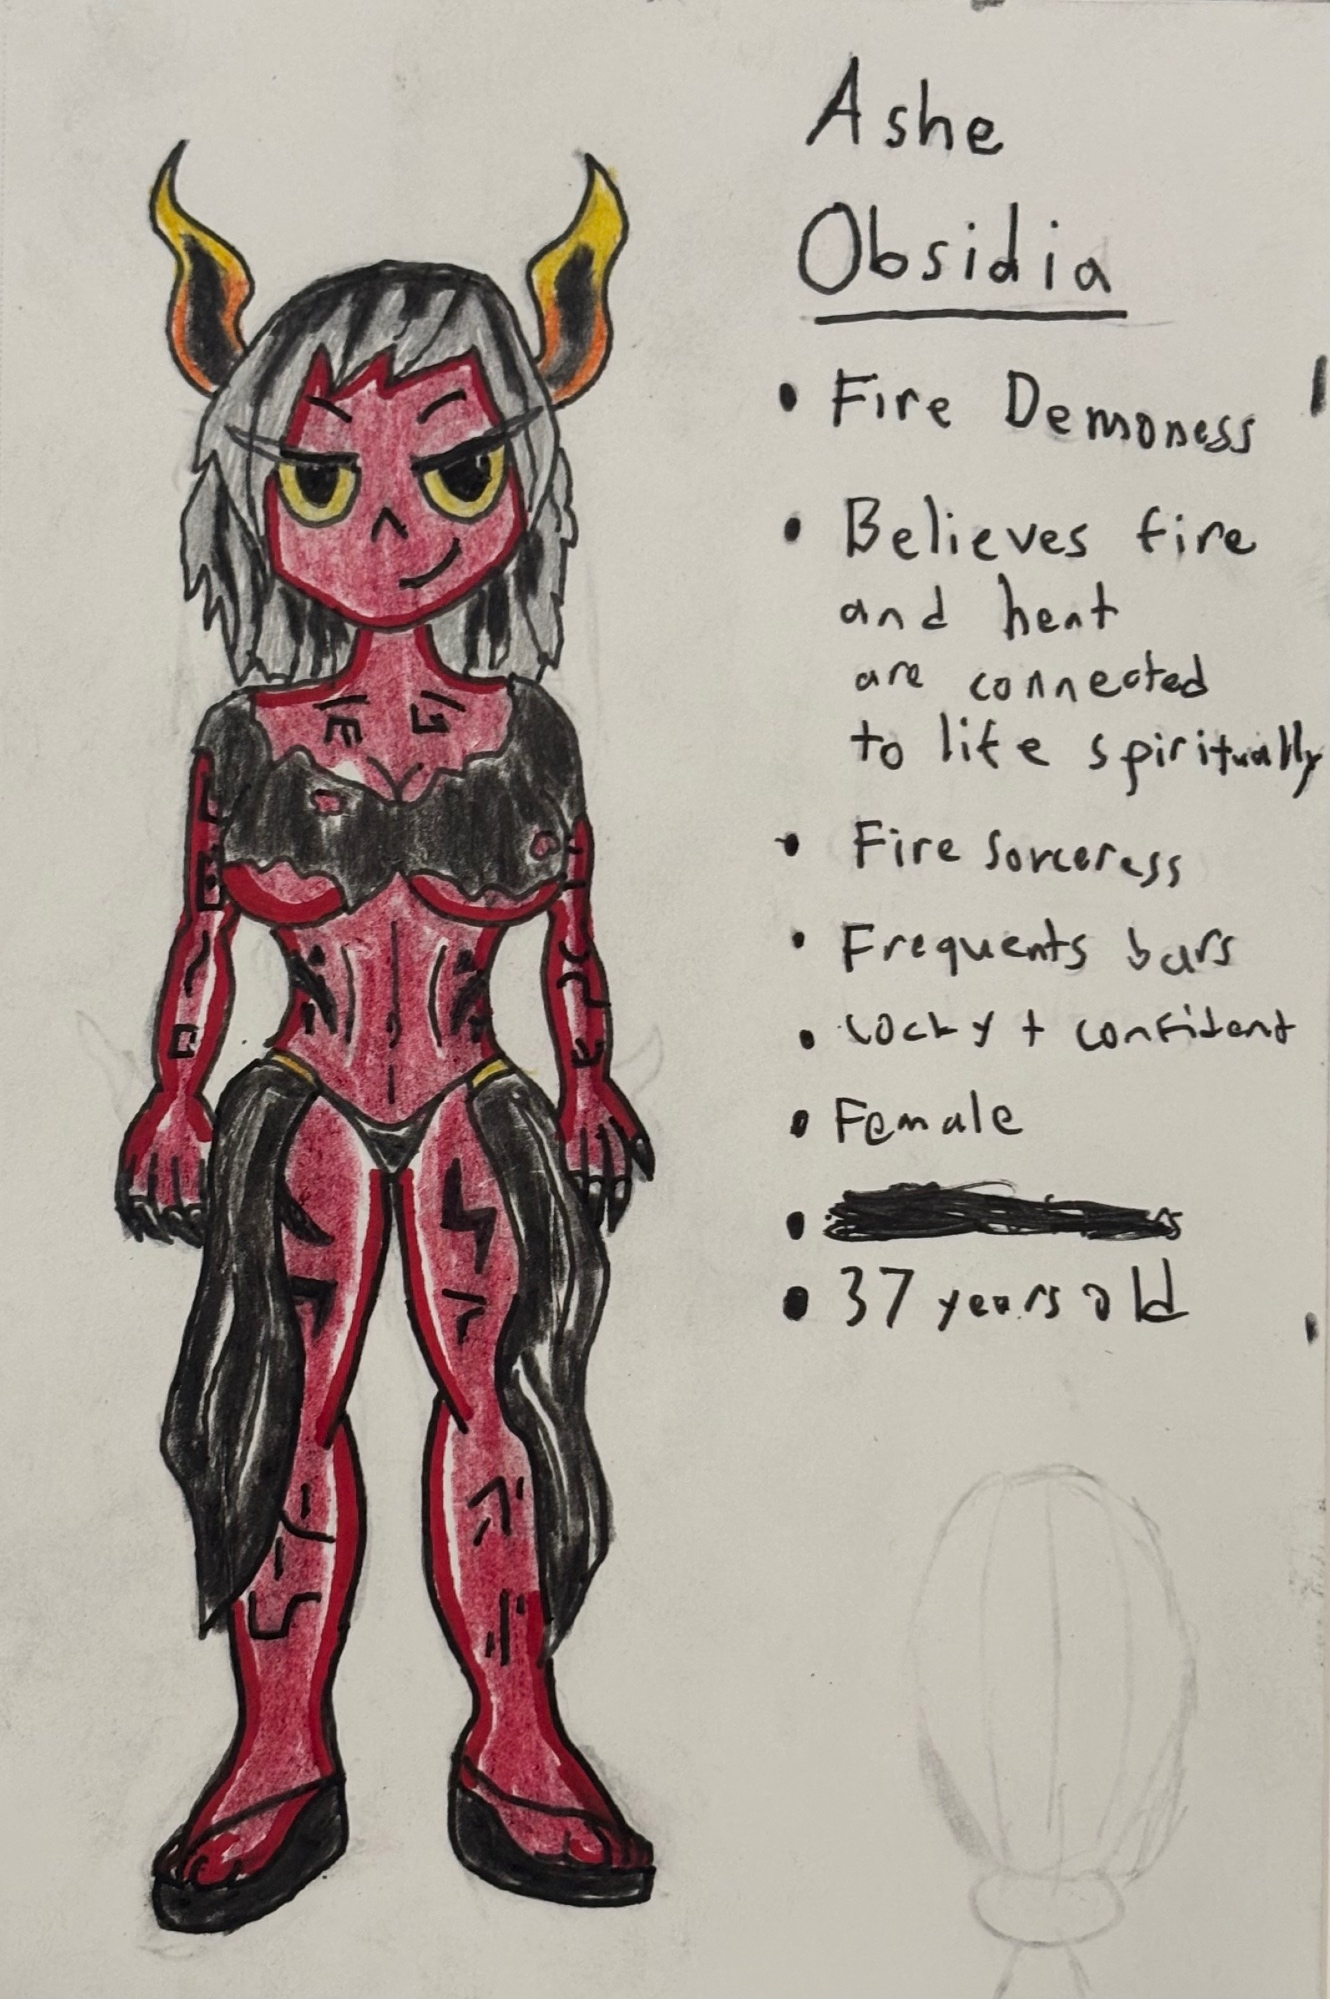 Ashe
Obsidia
• Fire Demoness
• Believes fire
and heat
are connected
to life spiritually
• Fire Sorceress
• Frequents bars
• Cocky + confident
• Female
• 37 years old